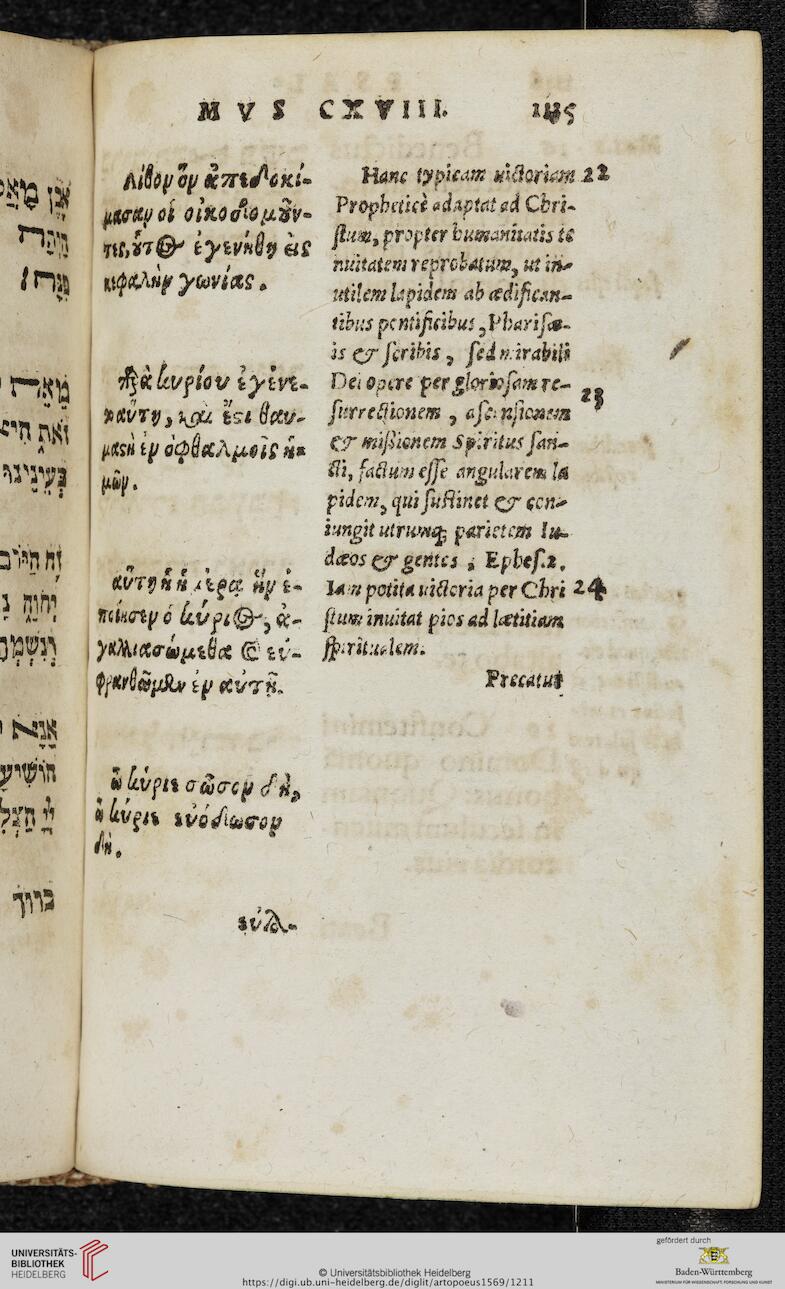 MVS CXVIII. 115
Λίθον ὃν ἀπεδοκί-
μασαν οἱ οἰκοδομοῦν-
τες, οὗτος ἐγενήθη εἰς
κεφαλὴν γωνίας.
παρὰ κυρίου ἐγένε-
το αὕτη, καὶ ἔστι θαυ-
μαστὴ ἐν ὀφθαλμοῖς ἡ-
μῶν.
αὕτη ἡ ἡμέρα ἣν ἐ-
ποίησεν ὁ κύριος, ἀ-
γαλλιασώμεθα καὶ εὐ-
φρανθῶμεν ἐν αὐτῇ.
ὦ κύριε σῶσον δὴ,
ὦ κύριε εὐόδωσον
δὴ.
εὐλο-
Hanc typicam uictoriam 22
Propheticè adaptat ad Chri-
stum, propter humanitatis te
nuitatem reprobatum, ut in-
utilem lapidem ab ædifican-
tibus pontificibus, Pharisæ-
is & scribis, sed mirabili
Dei opere per gloriosam re-
surrectionem, ascensionem 23
& missionem Spiritus san-
cti, factum esse angularem la
pidem, qui sustinet & con-
iungit utrumq; parietem Iu-
dæos & gentes, Ephes. 2.
Iam potita uictoria per Chri 24
stum inuitat pios ad lætitiam
spiritualem.
Precatur
מָאַ
מֵאֵת
זֹאת הִיא
בְּעֵינֵינוּ
זֶה הַיּוֹם
אָנָּא
הוֹשִׁיעָ
ברוך
UNIVERSITÄTS-
BIBLIOTHEK
HEIDELBERG
© Universitätsbibliothek Heidelberg
https://digi.ub.uni-heidelberg.de/diglit/artopoeus1569/1211
gefördert durch
Baden-Württemberg
MINISTERIUM FÜR WISSENSCHAFT, FORSCHUNG UND KUNST